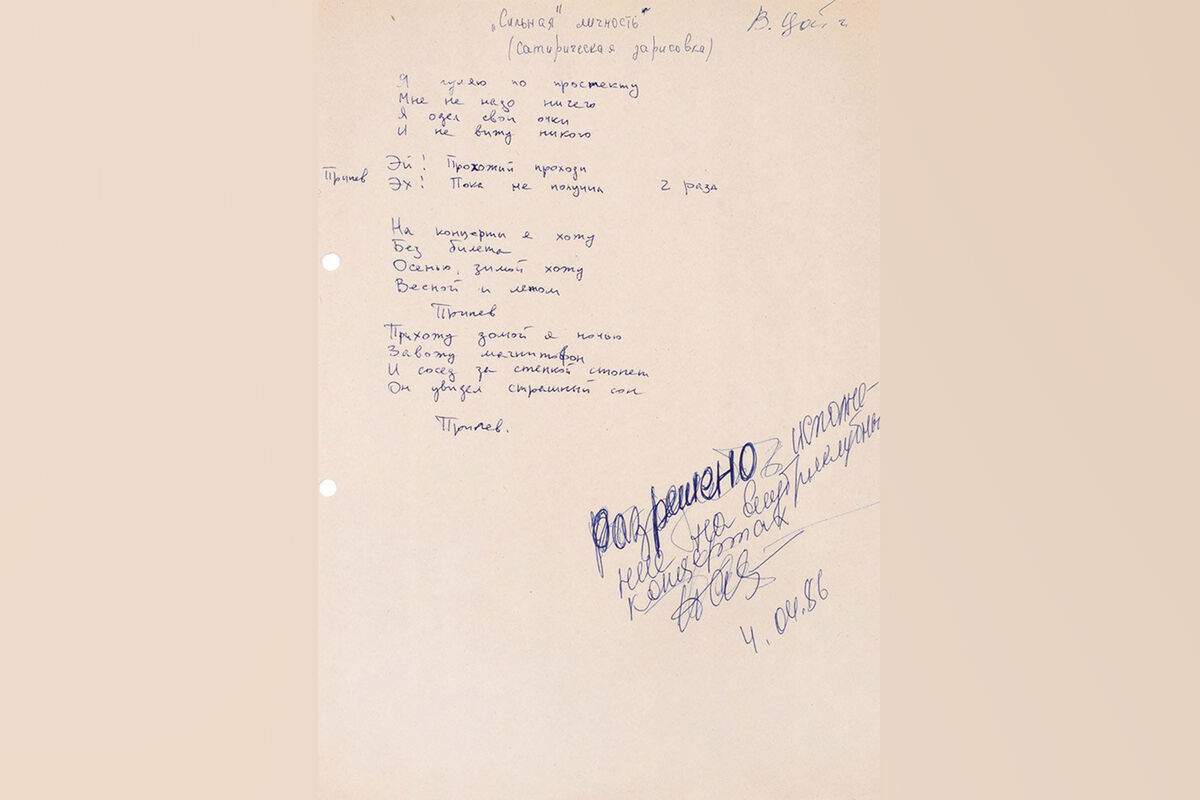 „Сильная" личность"
В. Цой
(сатирическая зарисовка)
Я гуляю по простекту
Мне не надо ничего
Я одел свои очки
И не вижу никого
Эй! Прохожий проходи
Припев
Эх! Пока не получил 2 раза
На концерты я хожу
Без билета
Осенью, зимой хожу
Весной и летом
Припев
Прихожу домой я ночью
Завожу магнитофон
И сосед за стенкой стонет
Он увидел страшный сон
Припев.
Разрешено к исполне-
нию на внутриклубных
концертах
4.04.86